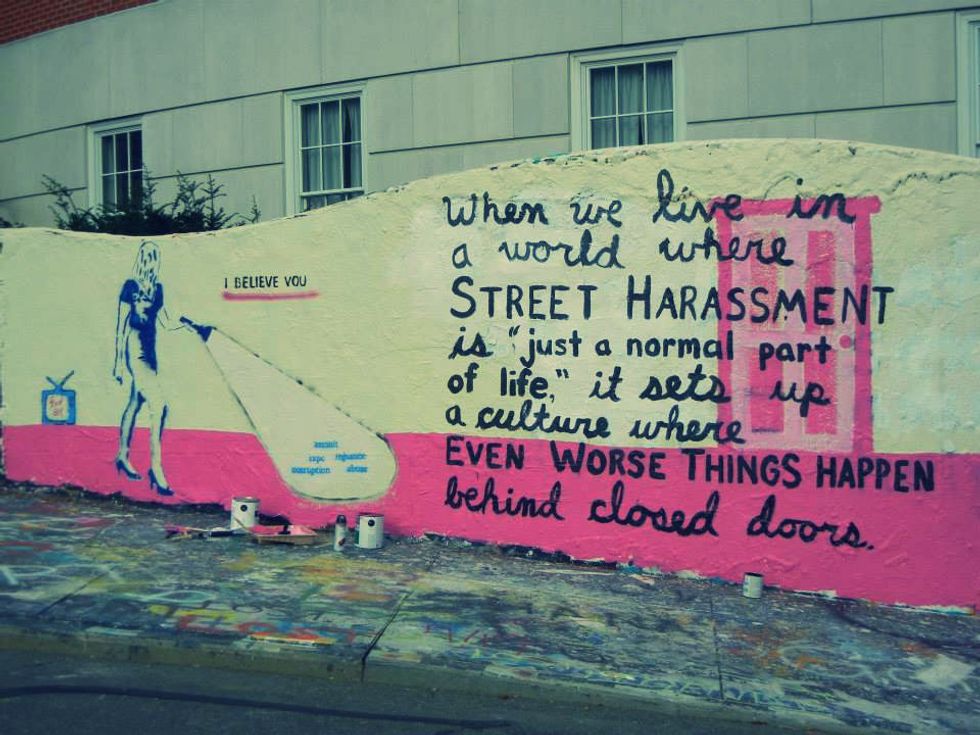 I BELIEVE YOU
When we live in
a world where
STREET HARASSMENT
is "just a normal part
of life," it sets up
a culture where
EVEN WORSE THINGS HAPPEN
behind closed doors.
assault
rape
corruption abuse